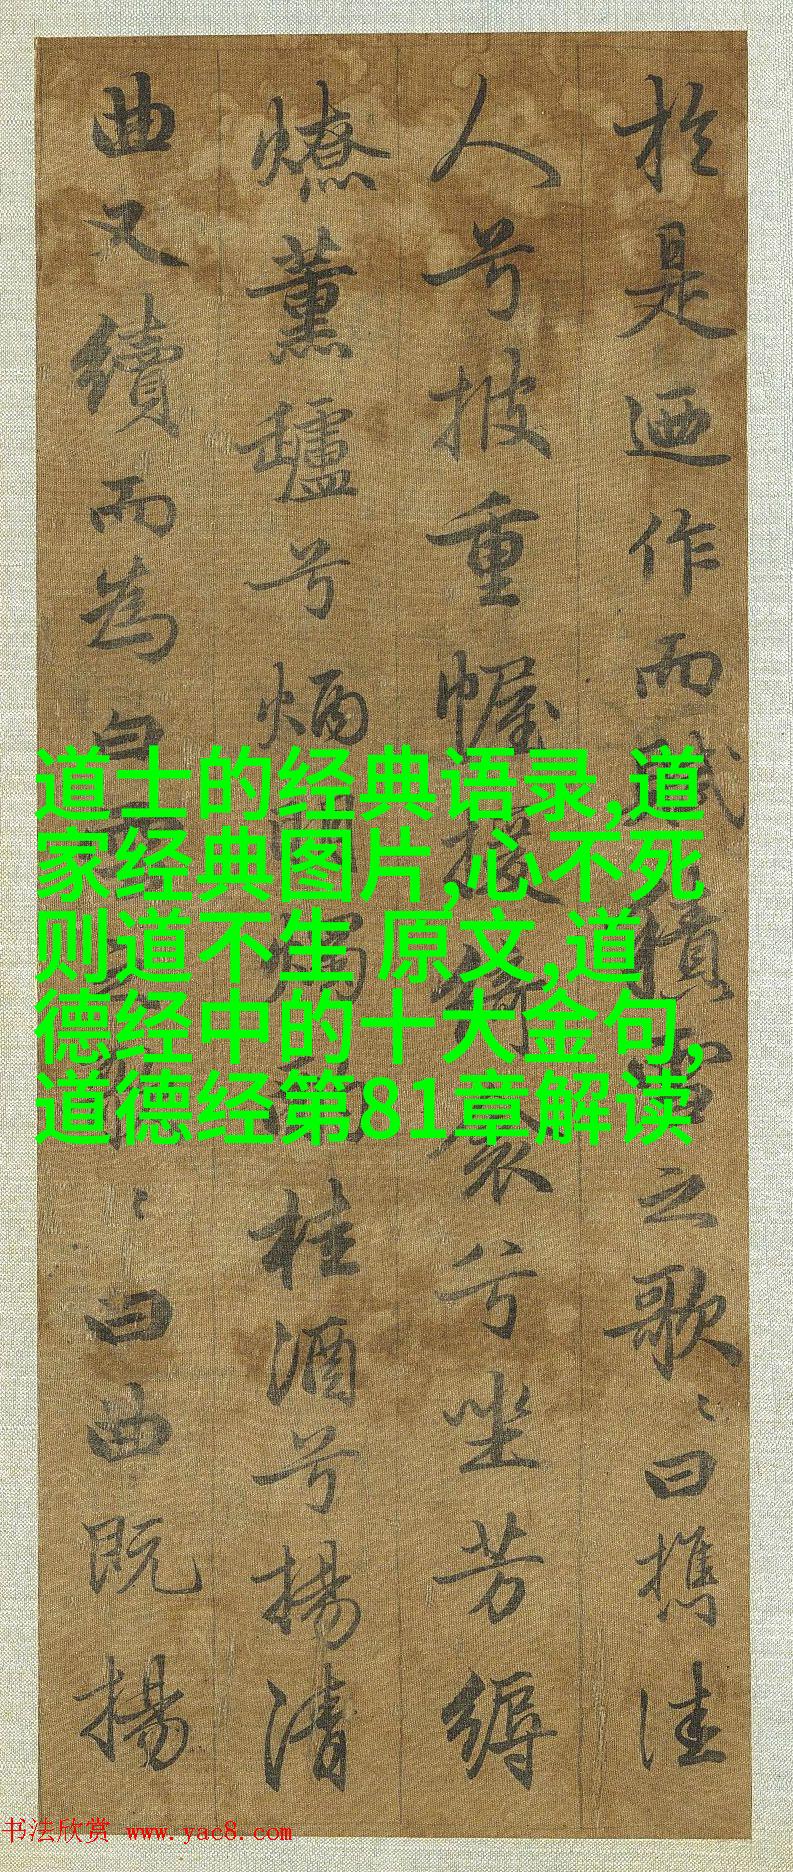 於是迺作而賦積雪之歌〻曰攜佳
人兮披重幄援綺衾兮坐芳縟
燎薰爐兮炳明燭酌桂酒兮揚清
曲又續而為白雪之歌〻曰曲既揚
道士的经典语录,道
家经典图片,心不死
则道不生 原文,道
德经中的十大金句,
道德经第81章解读
书法欣赏 www.yac8.com